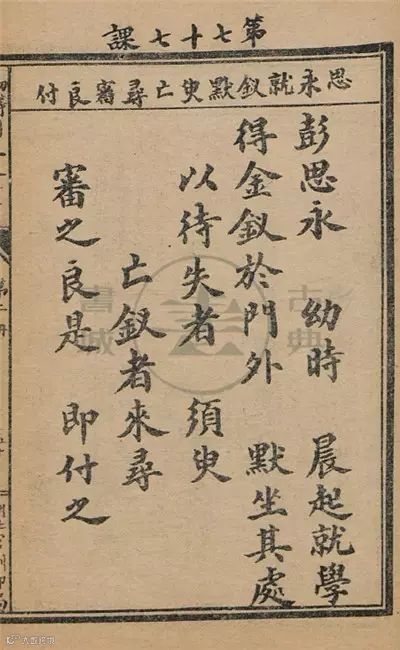 第七十七課
思永就釵默臾亡尋審良付
彭思永　幼時　晨起就學
得金釵於門外　默坐其處
以待失者　須臾
亡釵者來尋
審之良是　即付之
古典書城